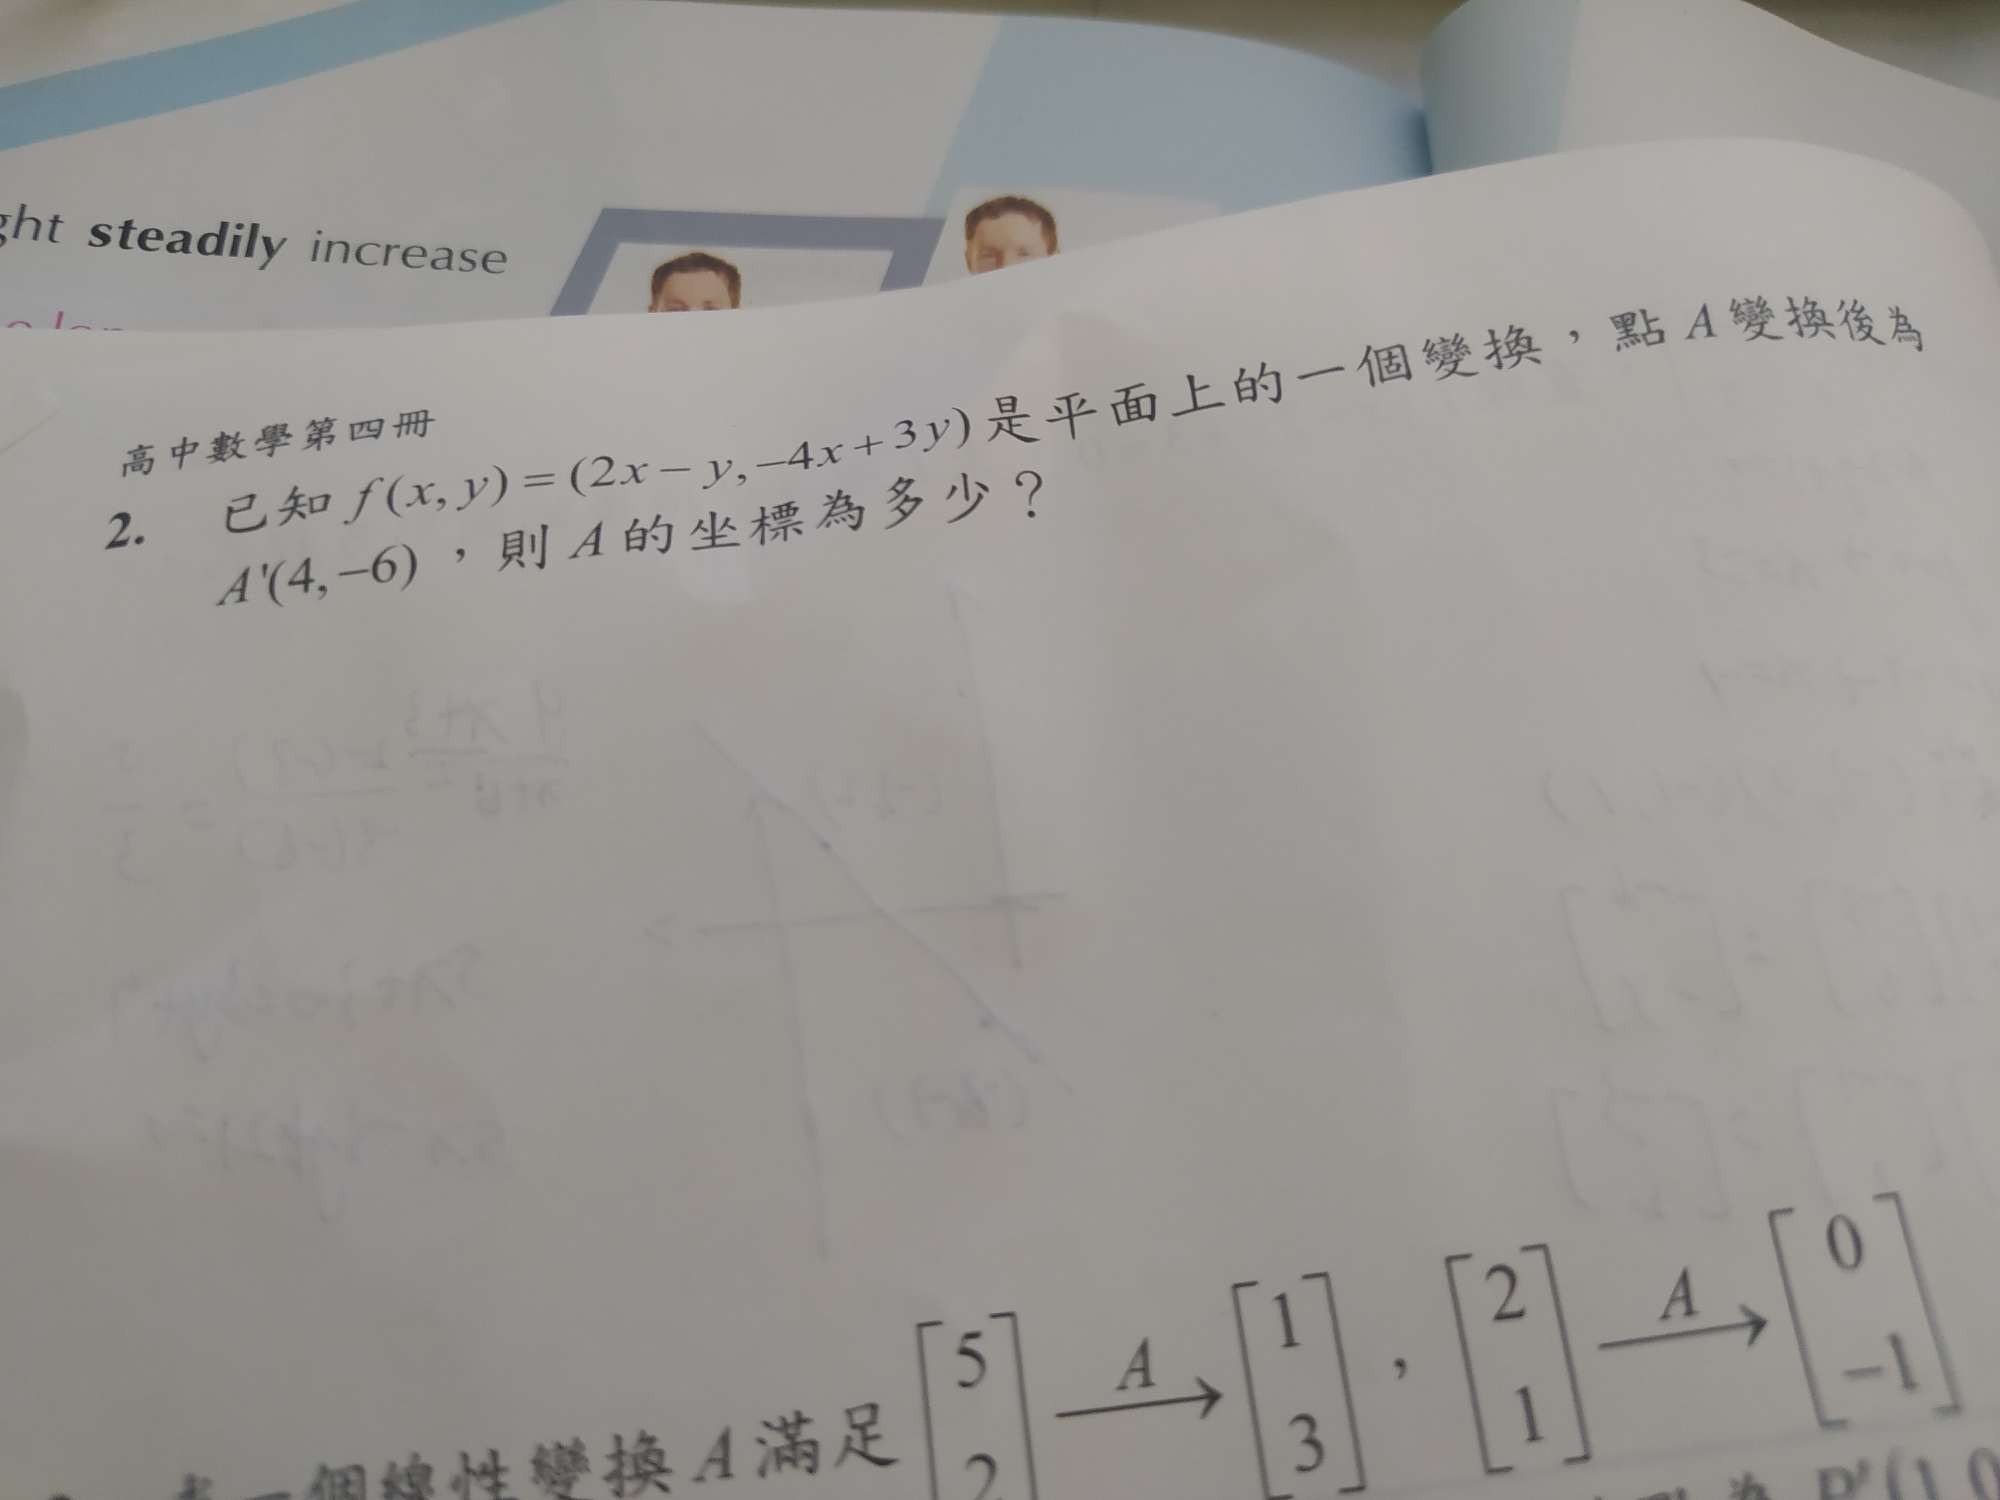 ght steadily increase
高中數學第四冊
2. 已知 f(x, y) = (2x − y, −4x + 3y) 是平面上的一個變換，點 A 變換後為
A'(4, −6)，則 A 的坐標為多少？
一個線性變換 A 滿足 [5 2] A→ [1 3] , [2 1] A→ [0 −1]
為 P'(1, 0